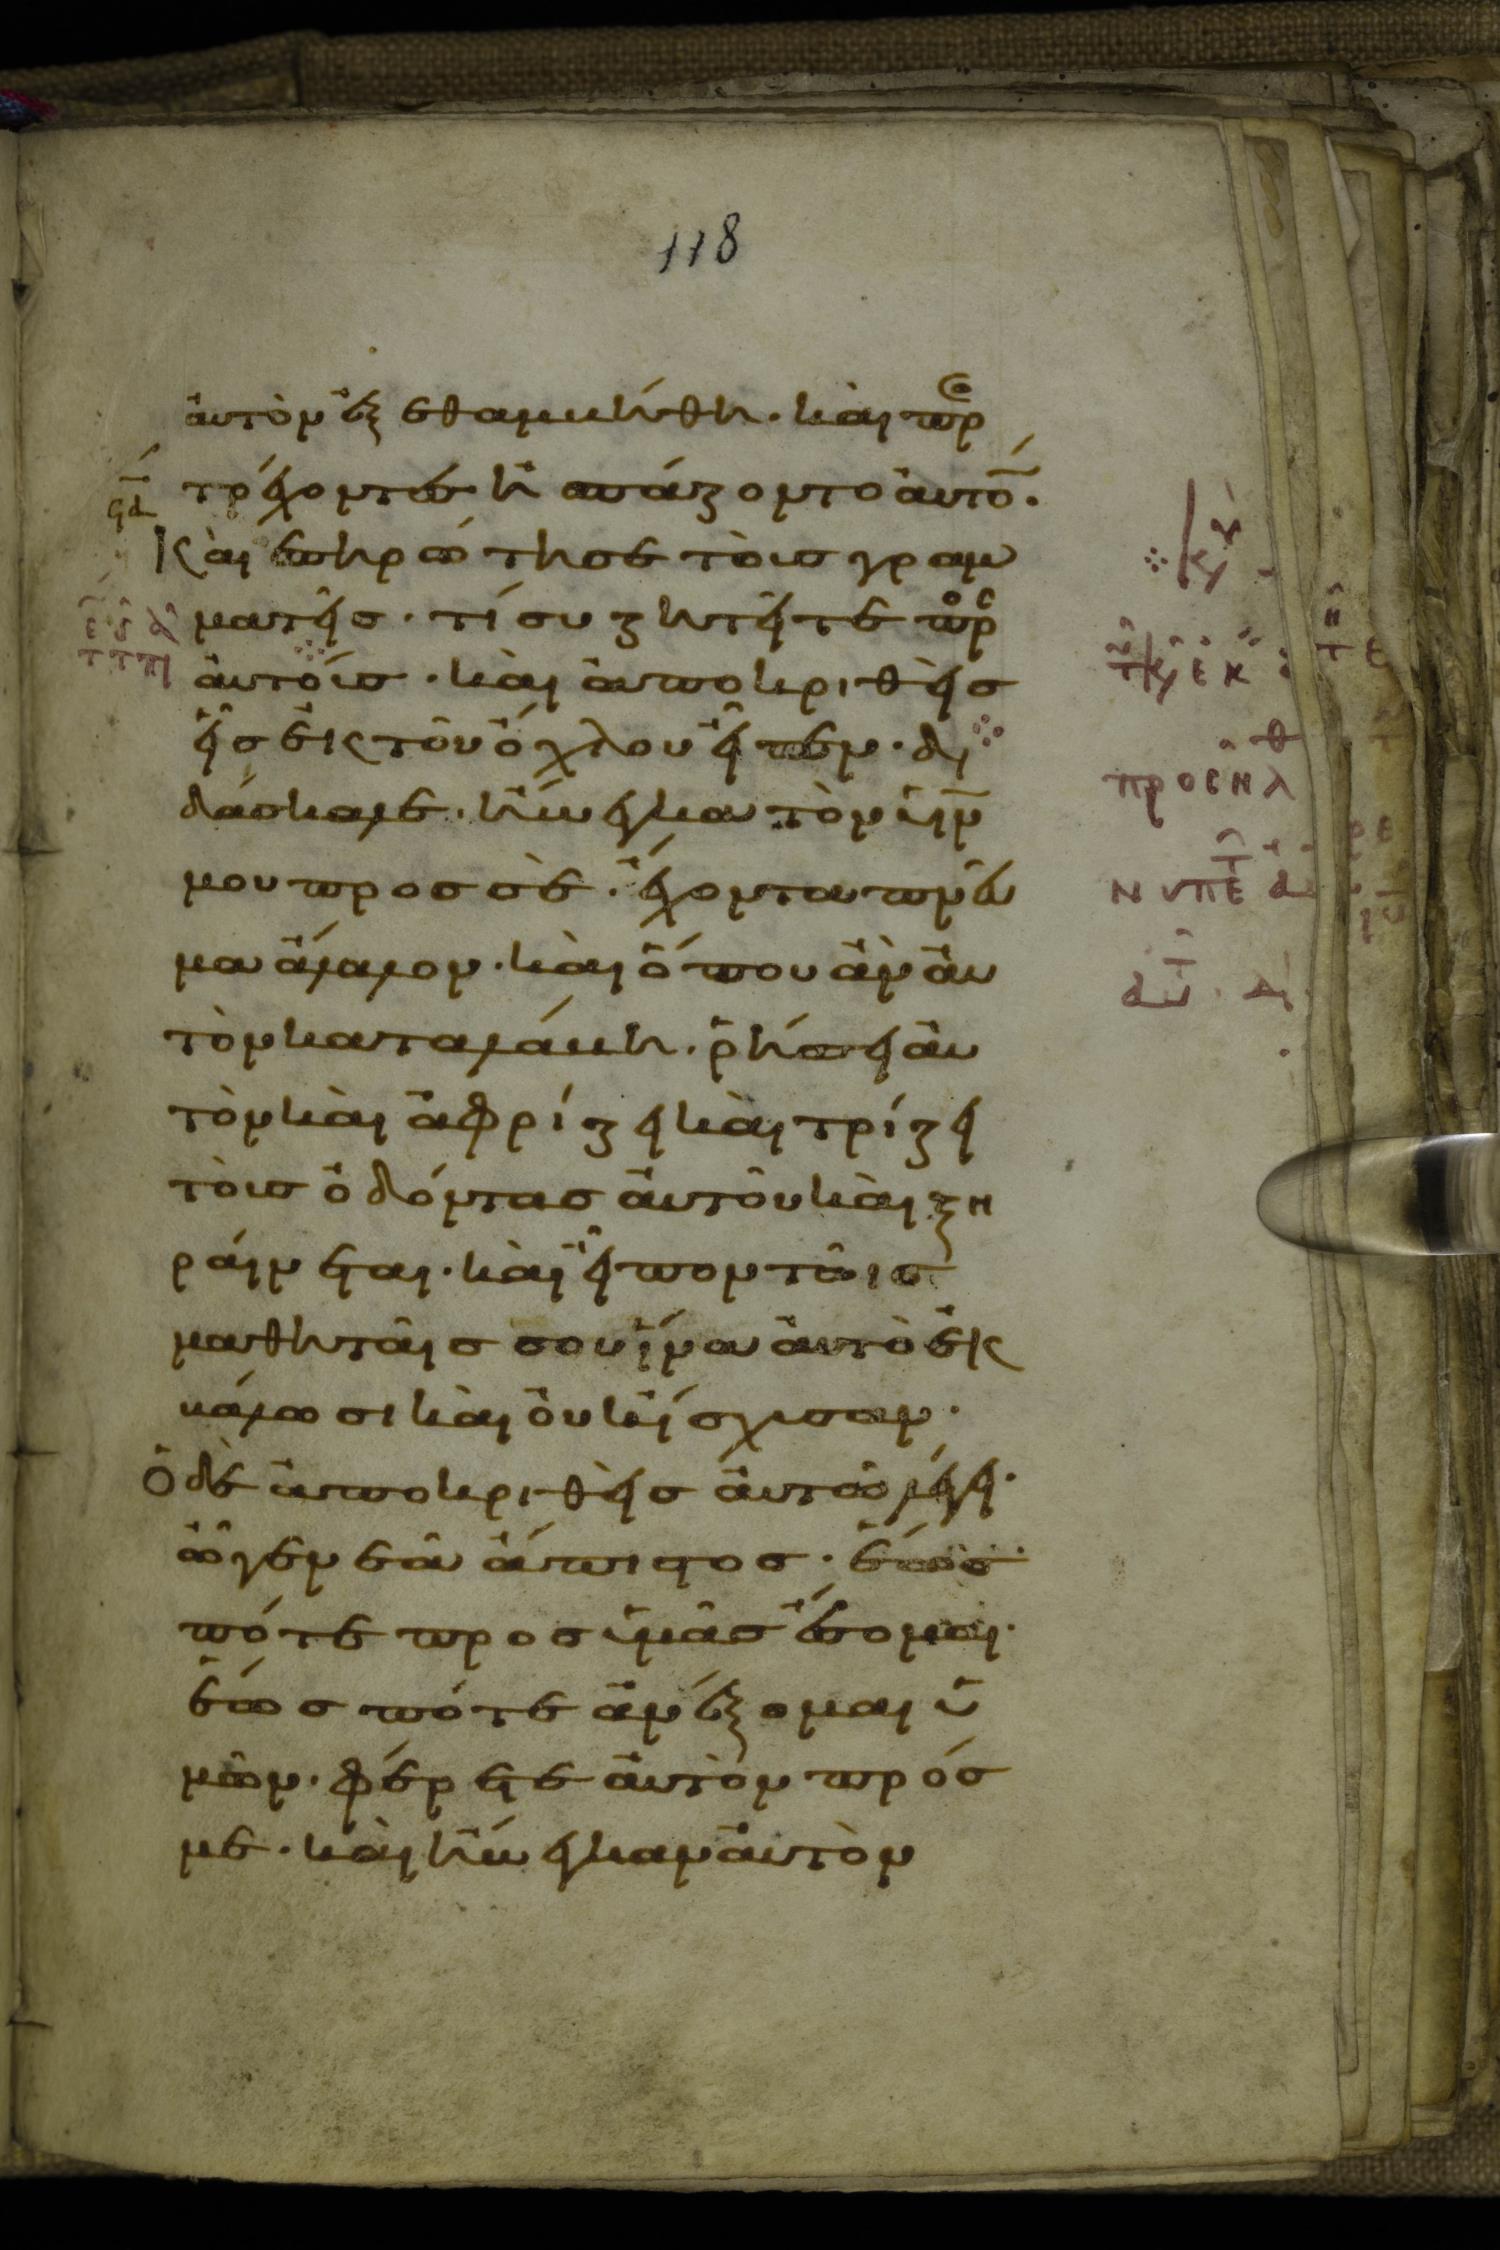 118
ἀυτὸν ἐξεθαμβήθη. καὶ πρ
τρέχοντες ἠσπάζοντο ἀυτό̄.
Καὶ ἐπηρώτησε τοὺσ γραμ
ματεῖσ. τί συζητεῖτε πρ
ἀυτούσ. καὶ ἀποκριθεὶσ
εἷσ ἐκ τοῦ ὄχλου εἶπεν. δι
δάσκαλε. ἤνεγκα τὸν υἱν̄
μου προσ σὲ. ἔχοντα πνᾱ
μα ἄλαλον. καὶ ὅπου ἂν ἀυ
τὸν καταλάβη. ῥήσσει ἀυ
τὸν καὶ ἀφρίζει καὶ τρίζει
τοὺσ ὀδόντασ ἀυτοῦ καὶ ξη
ραίνεται. καὶ εἶπον τοῖσ
μαθηταῖσ σου ἵνα ἀυτὸ ἐκ
βάλωσι καὶ οὐκ ἴσχυσαν.
Ὁ δὲ ἀποκριθεὶσ ἀυτῶ λέγει.
ὦ γενεὰ ἄπιστοσ. ἕωσ
πότε προσ ὑμᾶσ ἔσομαι.
ἕωσ πότε ἀνέξομαι ὑ
μῶν. φέρετε ἀυτὸν πρόσ
με. καὶ ἤνεγκαν ἀυτὸν